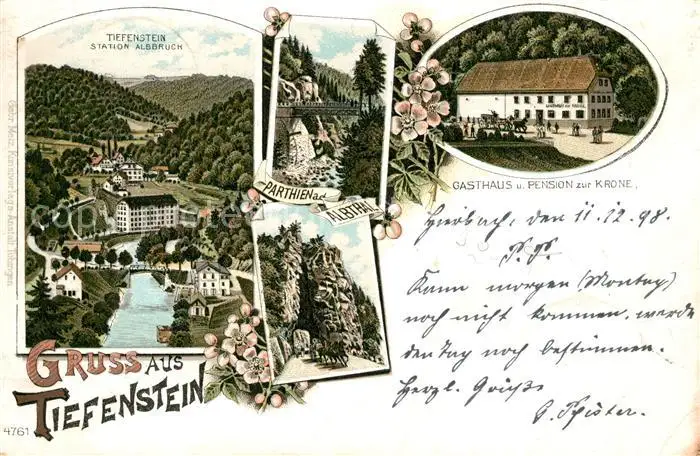 TIEFENSTEIN
STATION ALBBRUCK
PARTHIEN a.d.
ALBTHAL
GASTHAUS u. PENSION zur KRONE,
Gebr. Metz, Kunstverlags-Anstalt, Tübingen
GRUSS AUS
TIEFENSTEIN
4761
den 11.12.98.
P. P.
Kann morgen (Montag)
noch nicht kommen, werde
den Tag noch bestimmen.
Herzl. Grüße
Pfister.